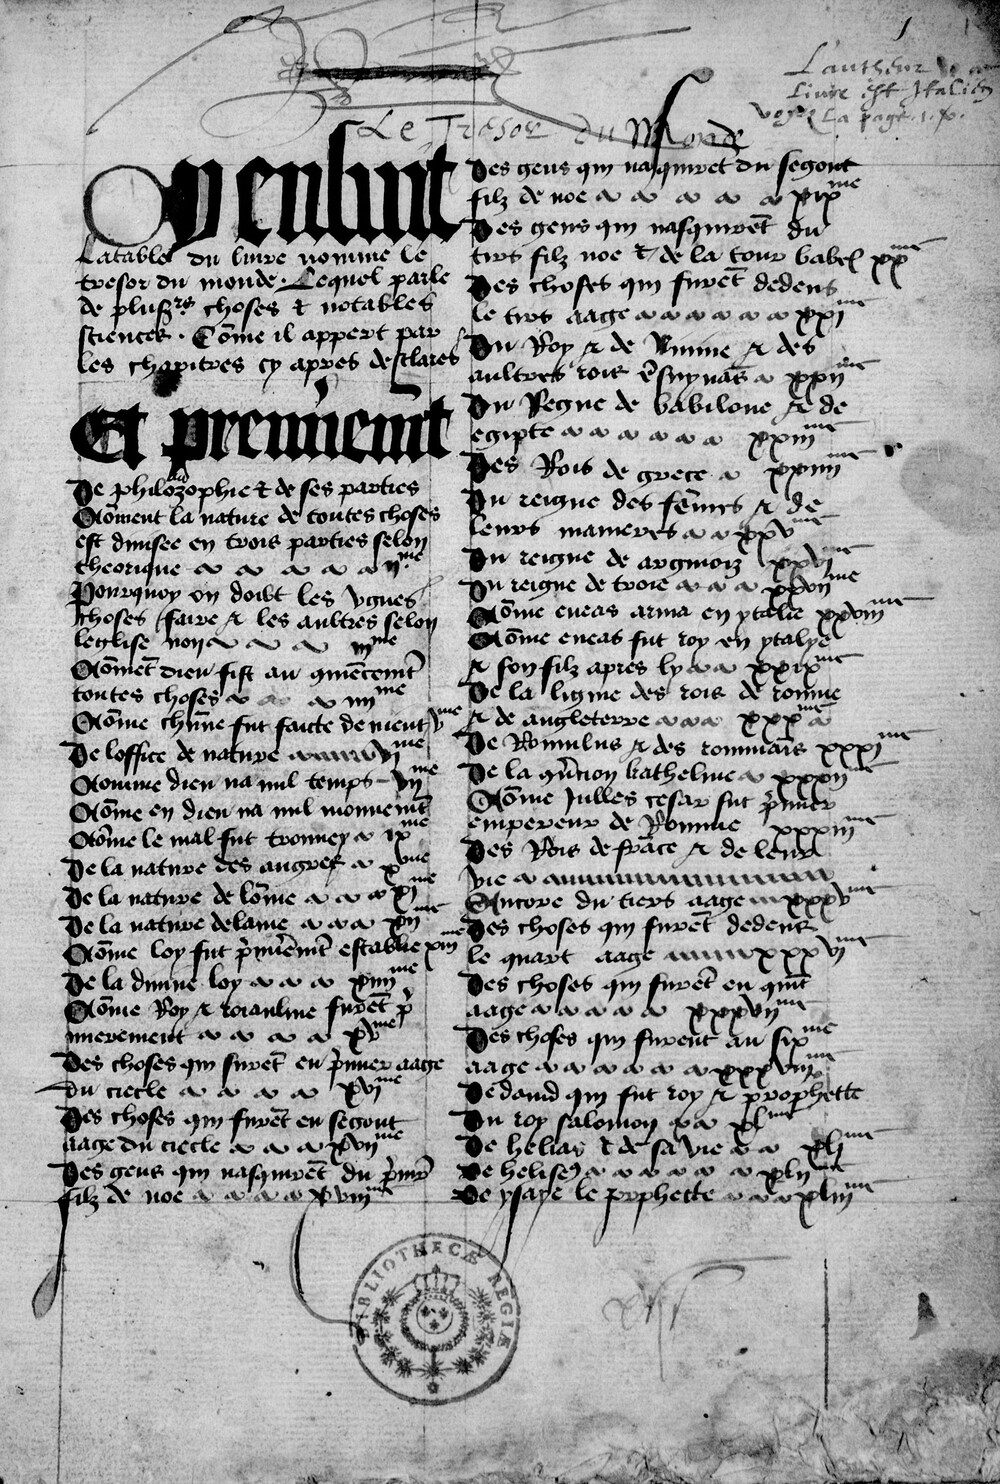 1
L'autheur
Livre est Italien
voyez La page. 1. x.
Le Tresor du Monde
Cy ensuit
La table du livre nomme le
tresor du monde. Lequel parle
de plusrs choses et notables
sciences. Cõme il appert par
les chapitres cy apres desclares
Et premieremt
De philozophie et de ses parties
Cõment la nature de toutes choses
est divisee en trois parties selon
theorique a a a a a iime
Pourquoy on doibt les vgnes
choses faire et les aultres selon
leglise non a a a iiime
Cõmẽt dieu fist au cõmẽcemt
toutes choses a a a iiiime
Cõme chũne fut faicte de nient vme
De loffice de nature vime
Comme dieu na nul temps viime
Cõme en dieu na nul mouvemt
Cõme le mal fut trouvey a ixme
De la nature des angres a xme
De la nature de lõme a a a xime
De la nature de lame a a a xiime
Cõme loy fut p̃mieremt establie xiiime
De la divine loy a a a xiiiime
Cõme Roy et roiaulme furẽt p̃
mierement a a a a xvme
Des choses qui furẽt en p̃mier aage
du ciecle a a a a xvime
Des choses qui furẽt en segont
aage du ciecle a a a xviime
Des gens qui nasquirẽt du p̃mir
filz de noe a a a a xviiime
Des gens qui nasquirẽt du segont
filz de noe a a a a a xixme
Des gens qui nasquirẽt du
tirs filz noe et de la tour babel xxme
Des choses qui furẽt dedens
le tirs aage a a a a a a xxime
Du Roy et de Ninive et des
aultres rois ẽsuynãs a xxiime
Du Regne de babilone et de
egipte a a a a a a xxiiime
Des Rois de grece a xxiiiime
Du reigne des fẽmes et de
leurs manieres a a xxvme
Du reigne de argmoiz xxvime
Du reigne de troie a a a xxviime
Cõme eneas ariva en ytalie xxviiime
Cõme eneas fut roy en ytalye
et son filz apres ly a a xxixme
De la lignie des rois de romme
et de angleterre a a a xxxme a
De Romulus et des rommaĩs xxxime
De la cõiuracion kathelinea xxxiime
Cõme Julles cesar fut p̃mier
empereur de Romme xxxiiime
Des Rois de frãce et de leur
vie a
Encore du tiers aage xxxvme
Des choses qui furẽt dedens
le quart aage xxxvime
Des choses qui furẽt en quĩt
aage a a a a a xxxviime
Des choses qui furent au sixme
aage a a a a a a xxxviiime
De david qui fut roy et prophette
Du roy salomon a a xlme
De helias et de sa vie a a xlime
De helisey a a a a a a xliime
De ysaye le prphette a a a xliiime
BIBLIOTHECÆ REGIÆ